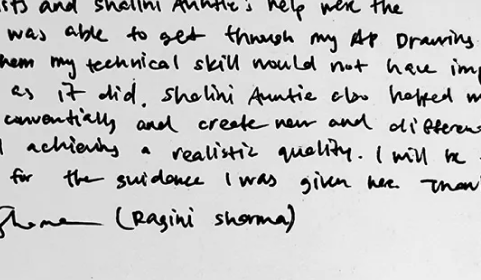 and Shalini Auntie's help were the
was able to get through my AP Drawing
my technical skill would not have
as it did. Shalini Auntie also helped
conventially and create new and
achieving a realistic quality. I will be
for the guidance I was given here.
(Ragini Sharma)